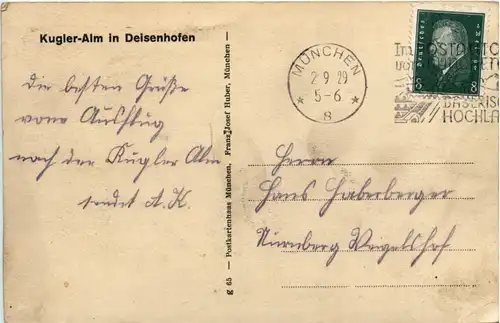 Kugler-Alm in Deisenhofen
Die besten Grüße
vom Ausflug
nach der Kugler Alm
sendet A. K.
g 65 — Postkartenhaus München, Franz Josef Huber, München —
MÜNCHEN
2 9 29
5-6
8
Im POSTAUTO
BAYERISCHE
HOCHLA
Deutsches Reich
8 8
Herrn
Hans Haberberger
Nürnberg Veigelshof